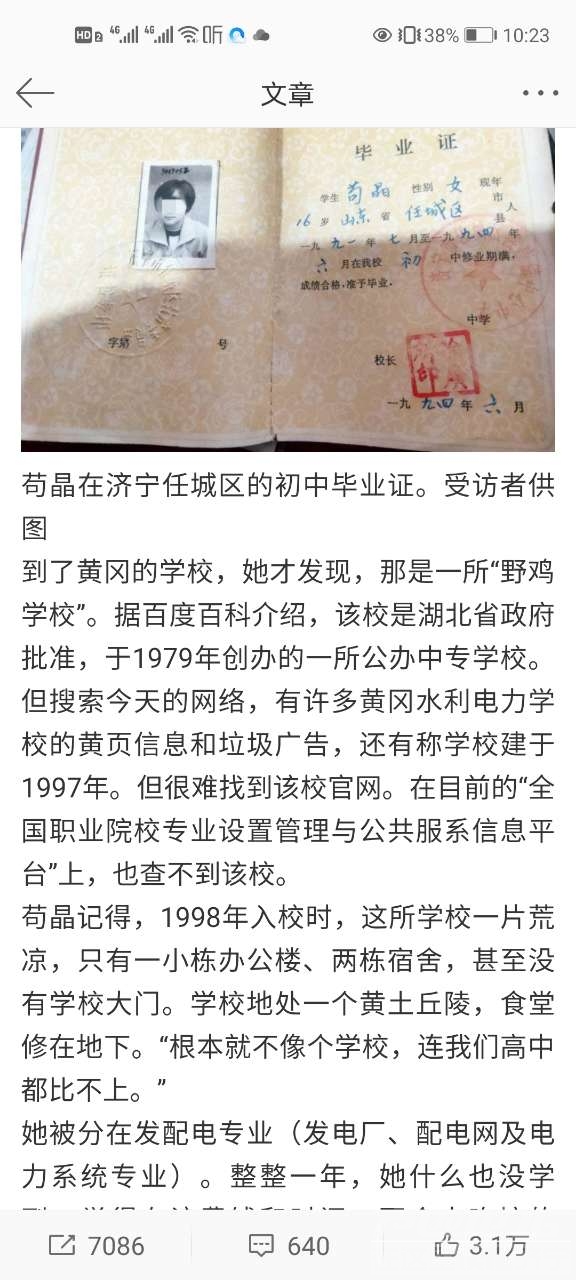 HD 2 4G 4G 听 38% 10:23
文章
毕业证
学生 苟晶 性别 女 现年
16 岁 山东 省 任城区 市县 人
一九 九一 年 七 月至一九 九四 年
六 月在我校 初 中修业期满，
成绩合格，准予毕业。
中学
校长
字第 号
一九 九四 年 六 月
苟晶在济宁任城区的初中毕业证。受访者供
图
到了黄冈的学校，她才发现，那是一所“野鸡
学校”。据百度百科介绍，该校是湖北省政府
批准，于1979年创办的一所公办中专学校。
但搜索今天的网络，有许多黄冈水利电力学
校的黄页信息和垃圾广告，还有称学校建于
1997年。但很难找到该校官网。在目前的“全
国职业院校专业设置管理与公共服系信息平
台”上，也查不到该校。
苟晶记得，1998年入校时，这所学校一片荒
凉，只有一小栋办公楼、两栋宿舍，甚至没
有学校大门。学校地处一个黄土丘陵，食堂
修在地下。“根本就不像个学校，连我们高中
都比不上。”
她被分在发配电专业（发电厂、配电网及电
力系统专业）。整整一年，她什么也没学
7086 640 3.1万